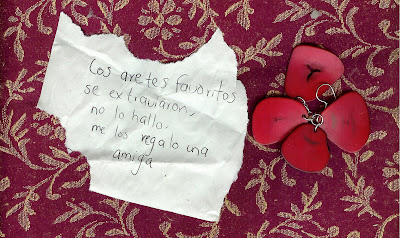 Los aretes favoritos
se extraviaron,
no lo hallo,
me los regalo una
amiga